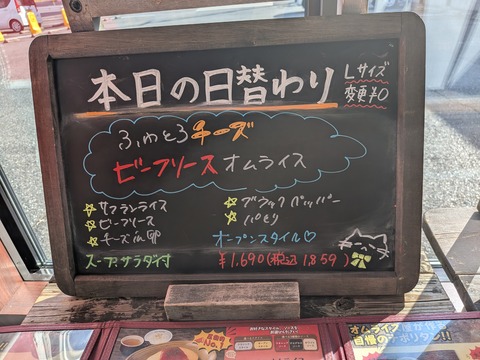 本日の日替わり
Lサイズ
変更¥0
ふわとろチーズ
ビーフソースオムライス
サフランライス
ビーフソース
チーズin卵
ブラックペッパー
パセリ
オープンスタイル♡
スープ、サラダ付
¥1,690(税込1,859)
オムライス
自慢のナポリタン!!